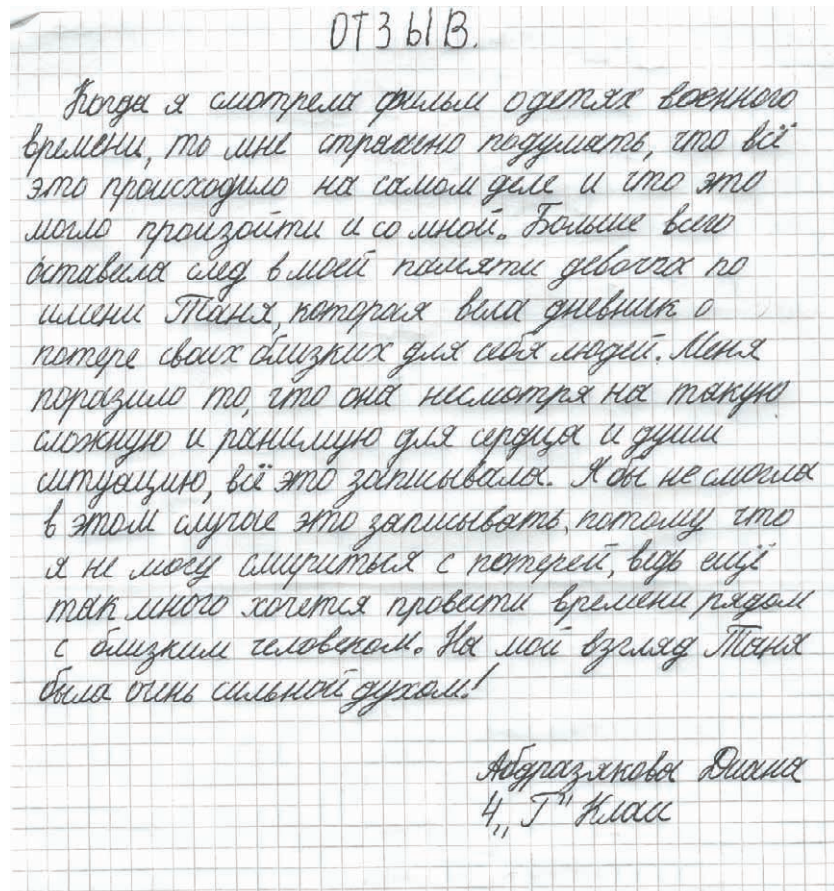 ОТЗЫВ.
Когда я смотрела фильм о детях военного
времени, то мне страшно подумать, что всё
это происходило на самом деле и что это
могло произойти и со мной. Больше всего
оставила след в моей памяти девочка по
имени Таня, которая вела дневник о
потере своих близких для себя людей. Меня
поразило то, что она несмотря на такую
сложную и ранимую для сердца и души
ситуацию, всё это записывала. Я бы не смогла
в этом случае это записывать, потому что
я не могу смириться с потерей, ведь ещё
так много хочется провести времени рядом
с близким человеком. На мой взгляд Таня
была очень сильной духом!
Абдразякова Диана
4 „Г" Класс